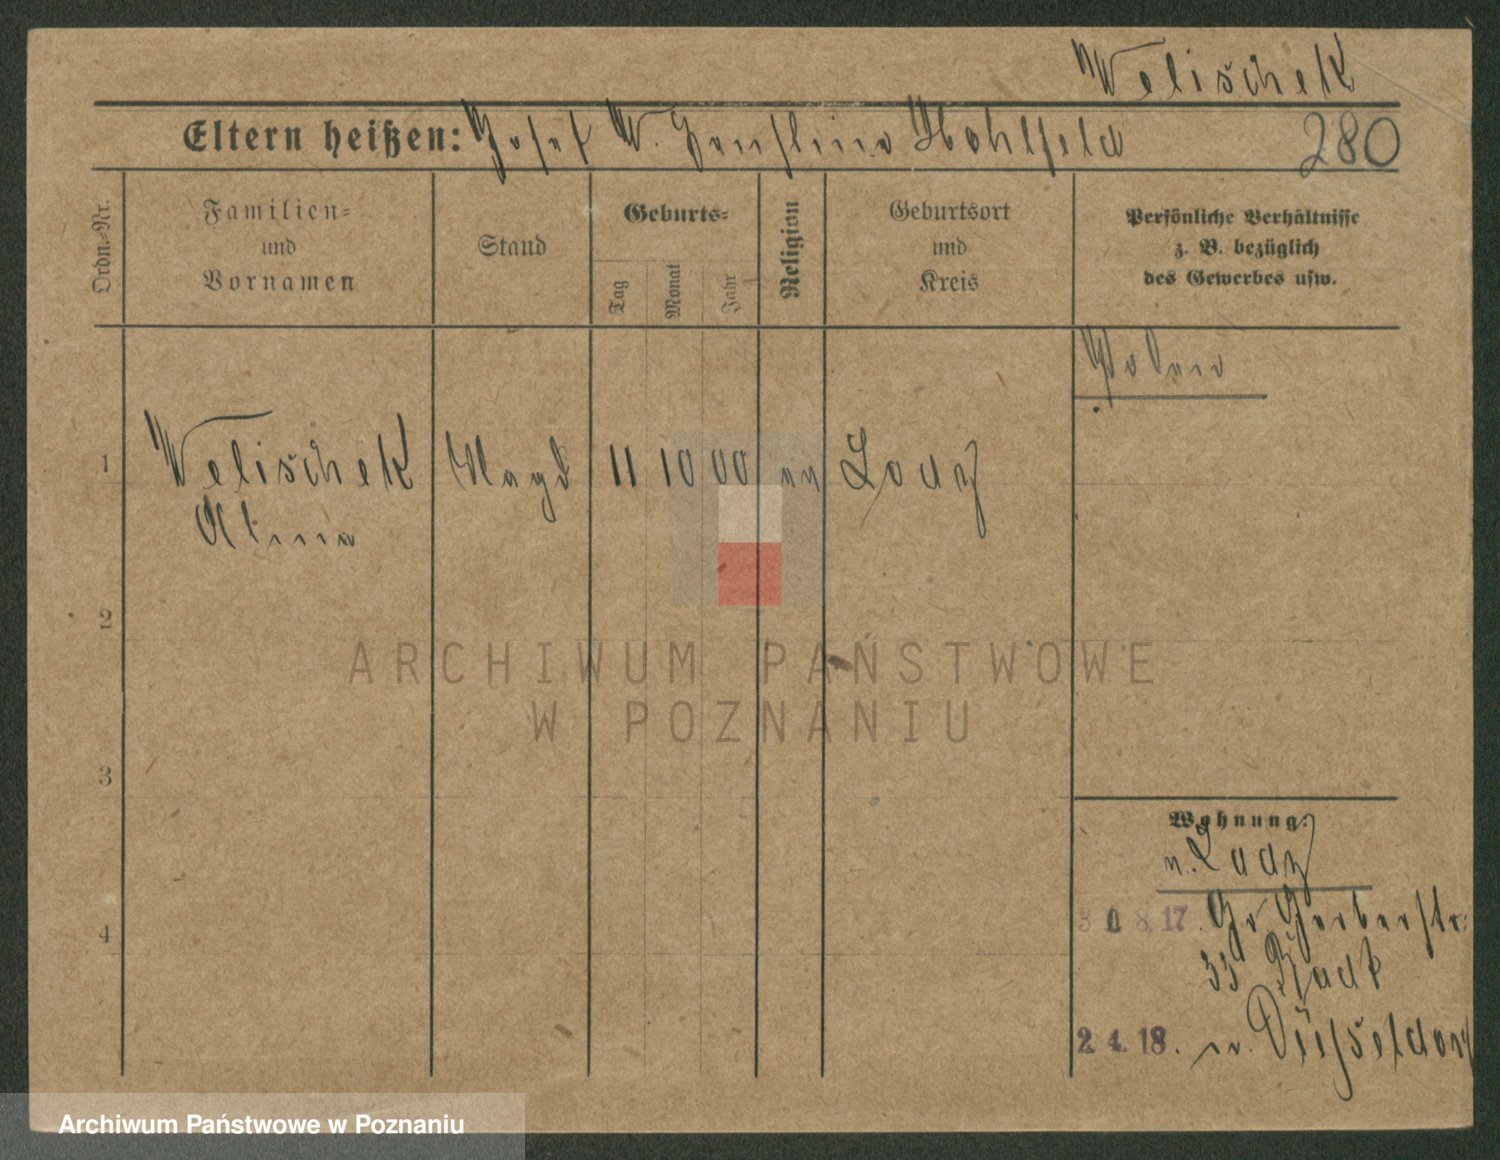 Welischek
Eltern heißen: Josef W. Paulina Hohlfeld 280
Ordn.-Nr.
Familien-
und
Vornamen
Stand
Geburts-
Tag
Monat
Jahr
Religion
Geburtsort
und
Kreis
Persönliche Verhältnisse
z. B. bezüglich
des Gewerbes usw.
Polen
1 Welischek Magd 11 10 00 Lodz
Alma
2
3
4
Wohnung:
v. Lodz
30 8.17. Gr Gerberstr.
33
2.4.18. n. Düsseldorf
ARCHIWUM PAŃSTWOWE
W POZNANIU
Archiwum Państwowe w Poznaniu